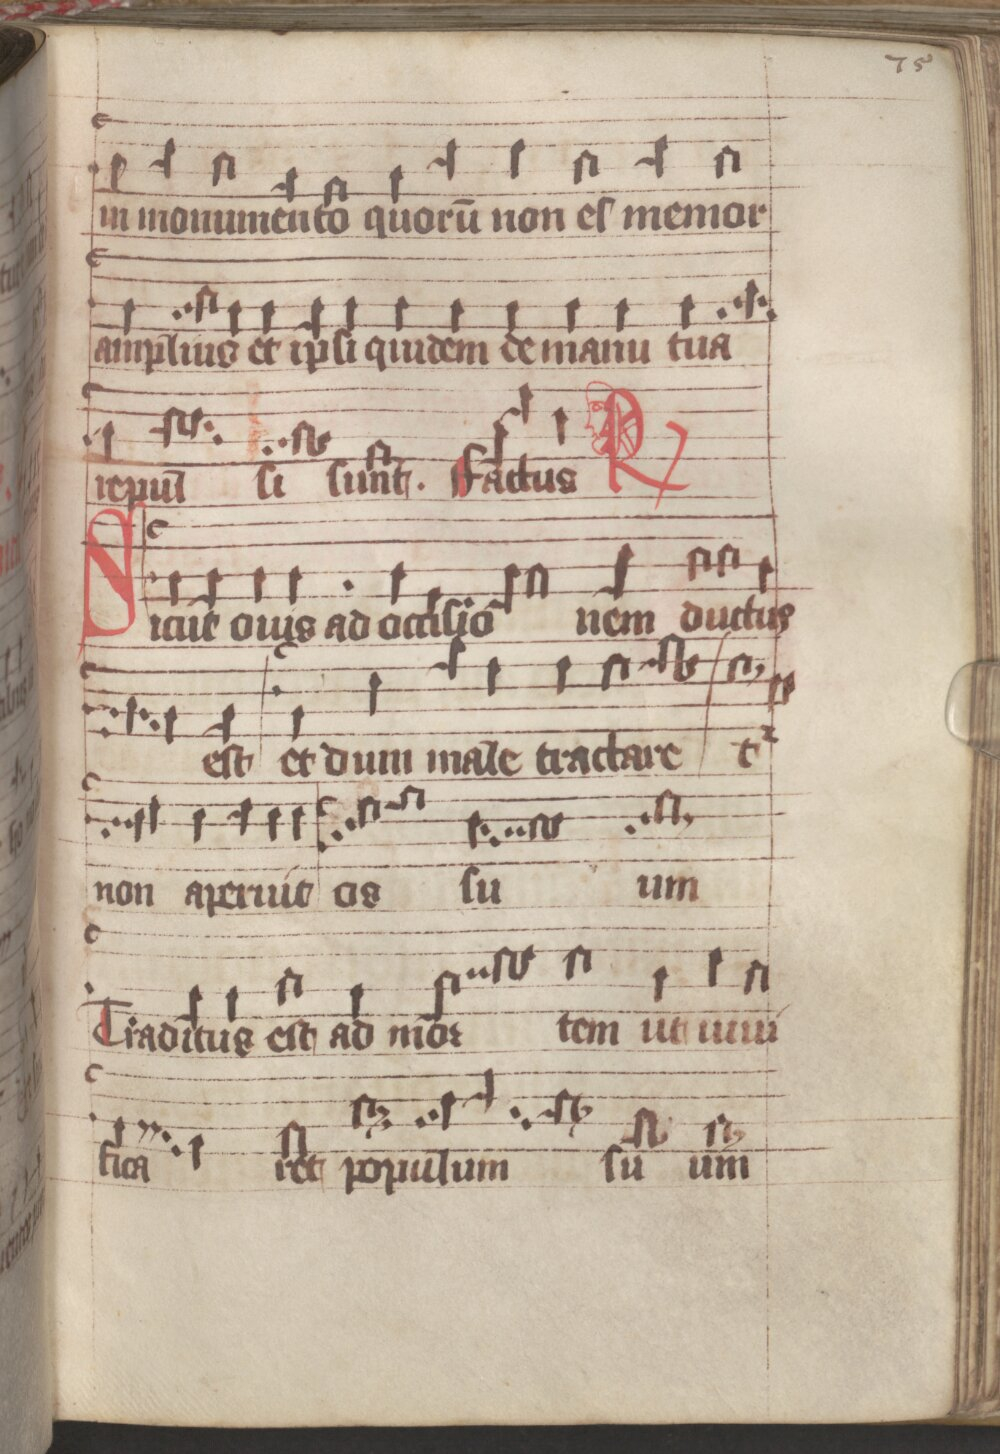 75
in monumento quorū non es memor
amplius et ipsi quidem de manu tua
repul si sunt. Factus R
Sicut ouis ad occisio nem ductus
est et dum male tractare t
non aperuit os su um
Traditus est ad mor tem ut uiui
fica ret populum su um